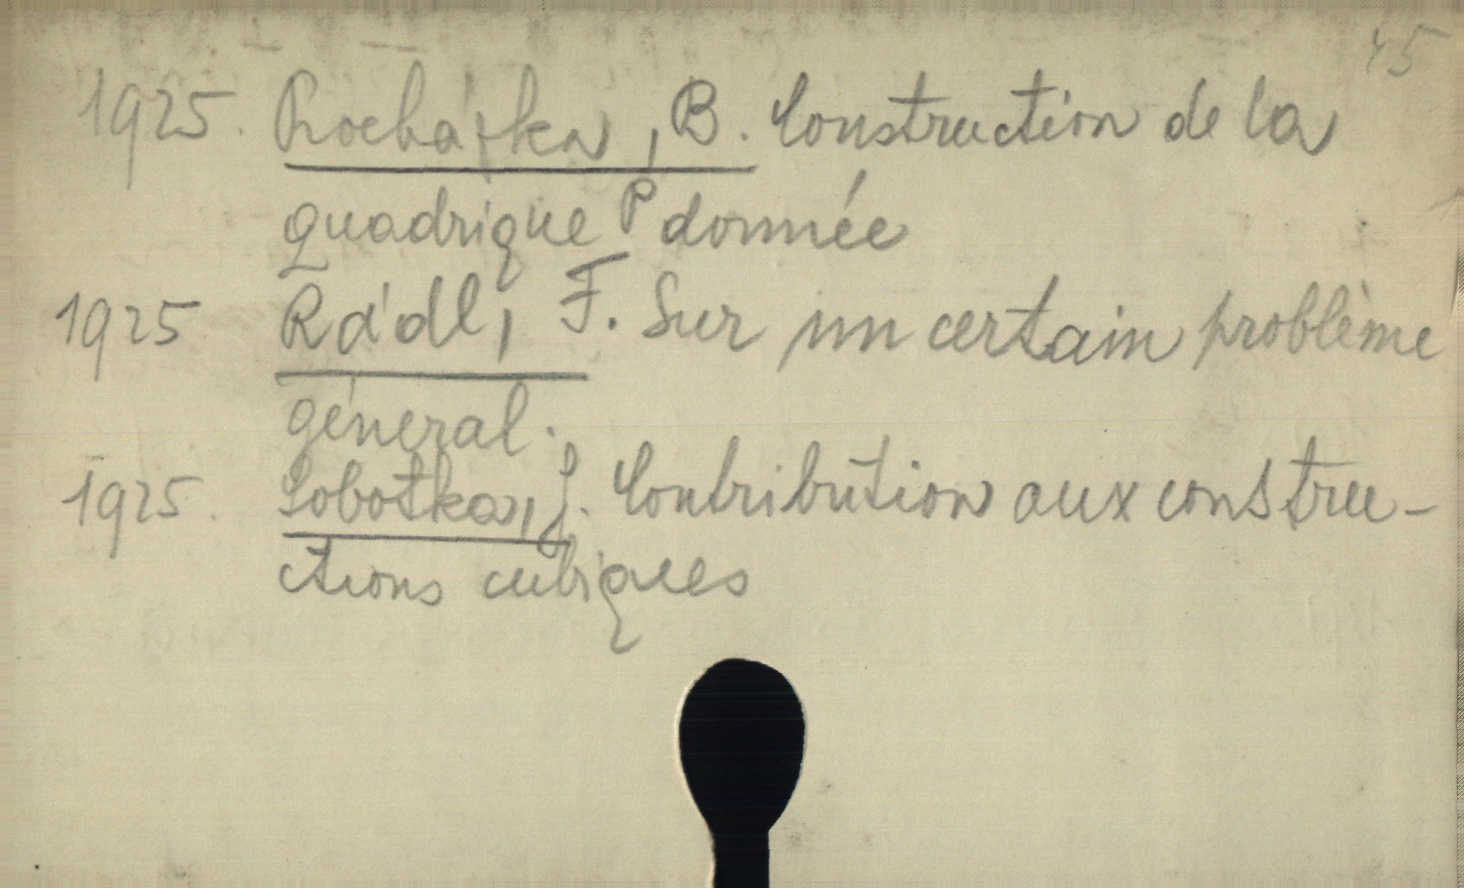 45
1925. Procházka, B. Construction de la
quadrique P donnée
1925 Rádl, F. Sur un certain problème
géneral.
1925. Sobotka, J. Contribution aux constru-
ctions cubiques